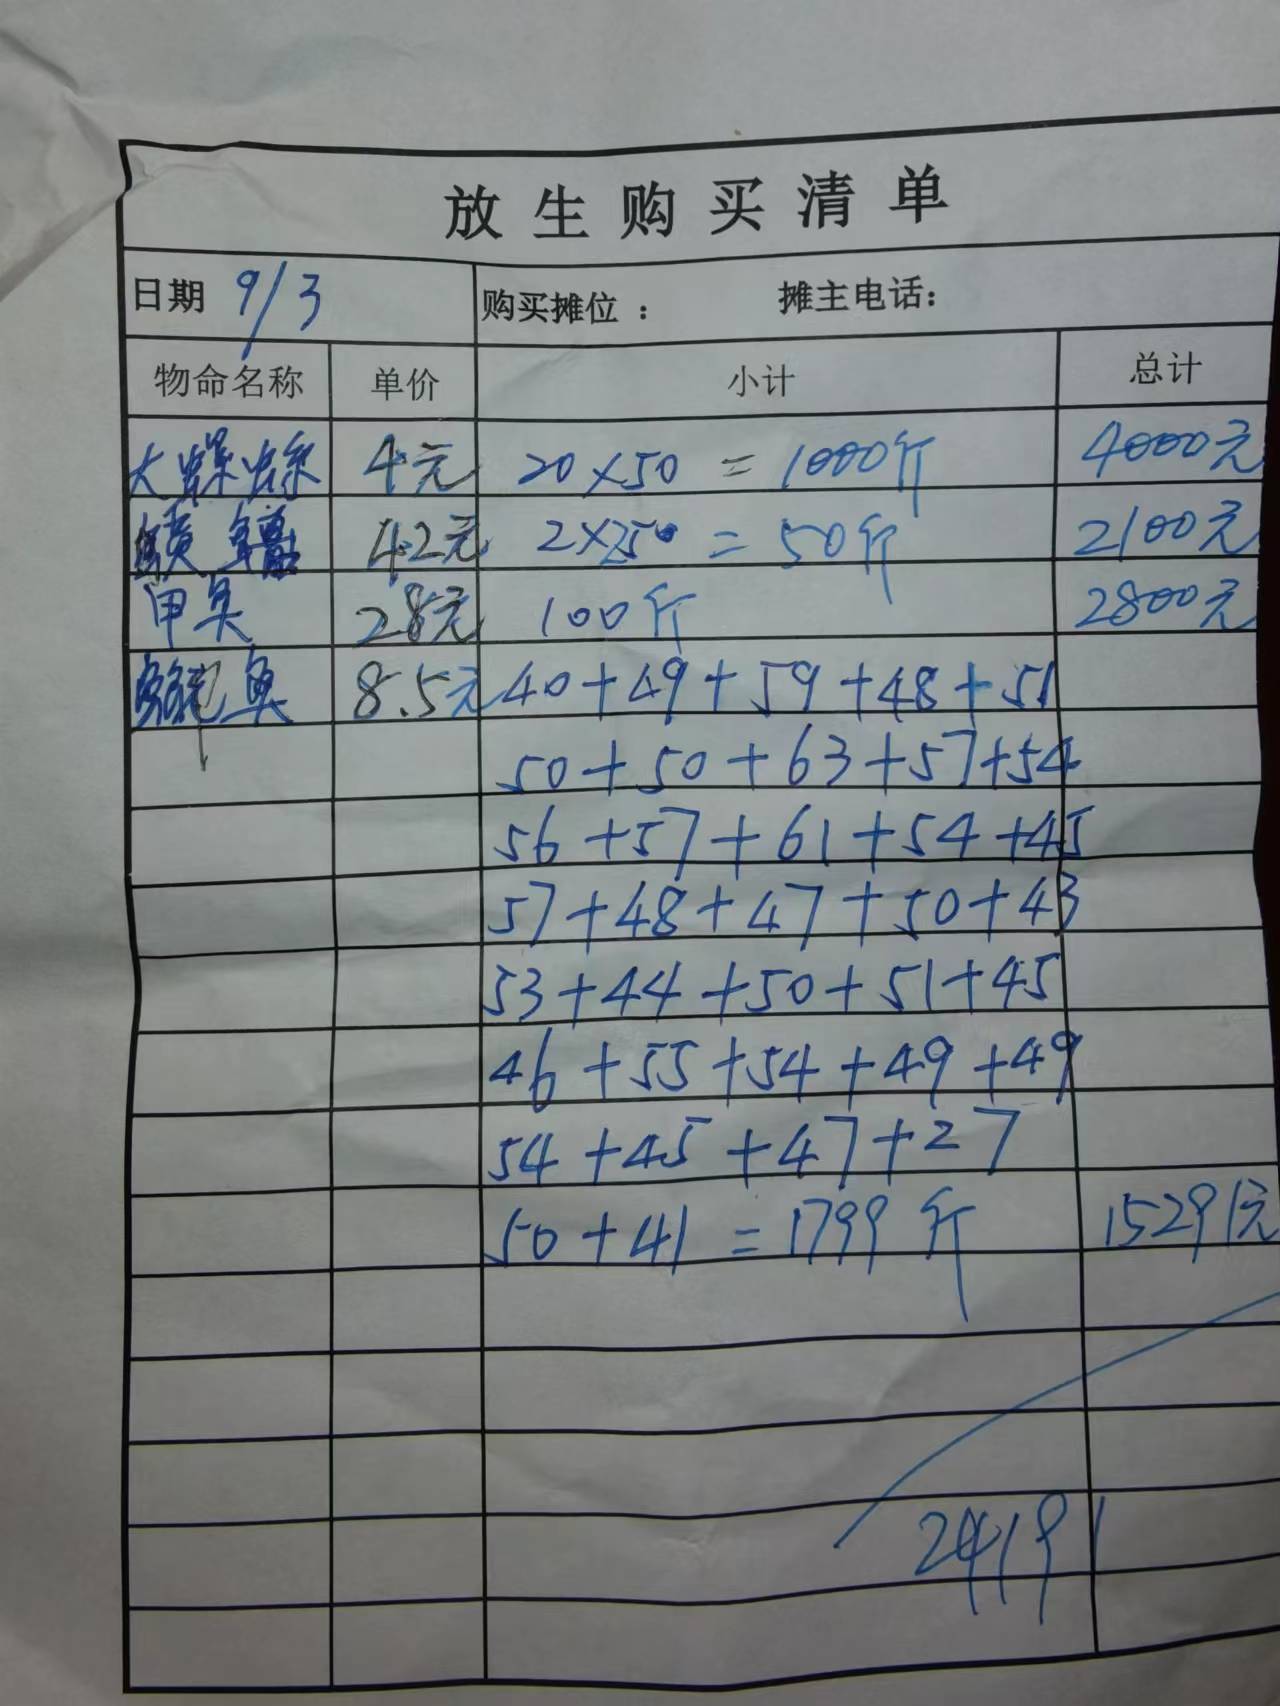 放生购买清单
日期 9/3 购买摊位： 摊主电话：
物命名称 单价 小计 总计
大螺蛳 4元 20×50 = 1000斤 4000元
黄鳝 42元 = 50斤 2100元
甲鱼 28元 100斤 2800元
鱼 8.5元 40+49+59+48+51
50+50+63+57+54
56+57+61+54+45
57+48+47+50+43
53+44+50+51+45
46+55+54+49+49
54+45+47+27
50+41=1799斤 15291元
24191